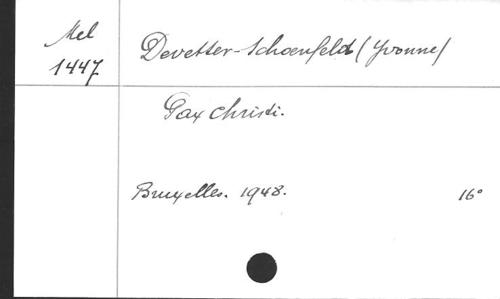 Mel
1447
Devetter-Schoenfeld (Yvonne)
Pax Christi.
Bruxelles. 1948. 16°